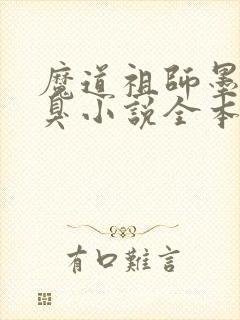 魔道祖師墨
臭小說全本
有口難言